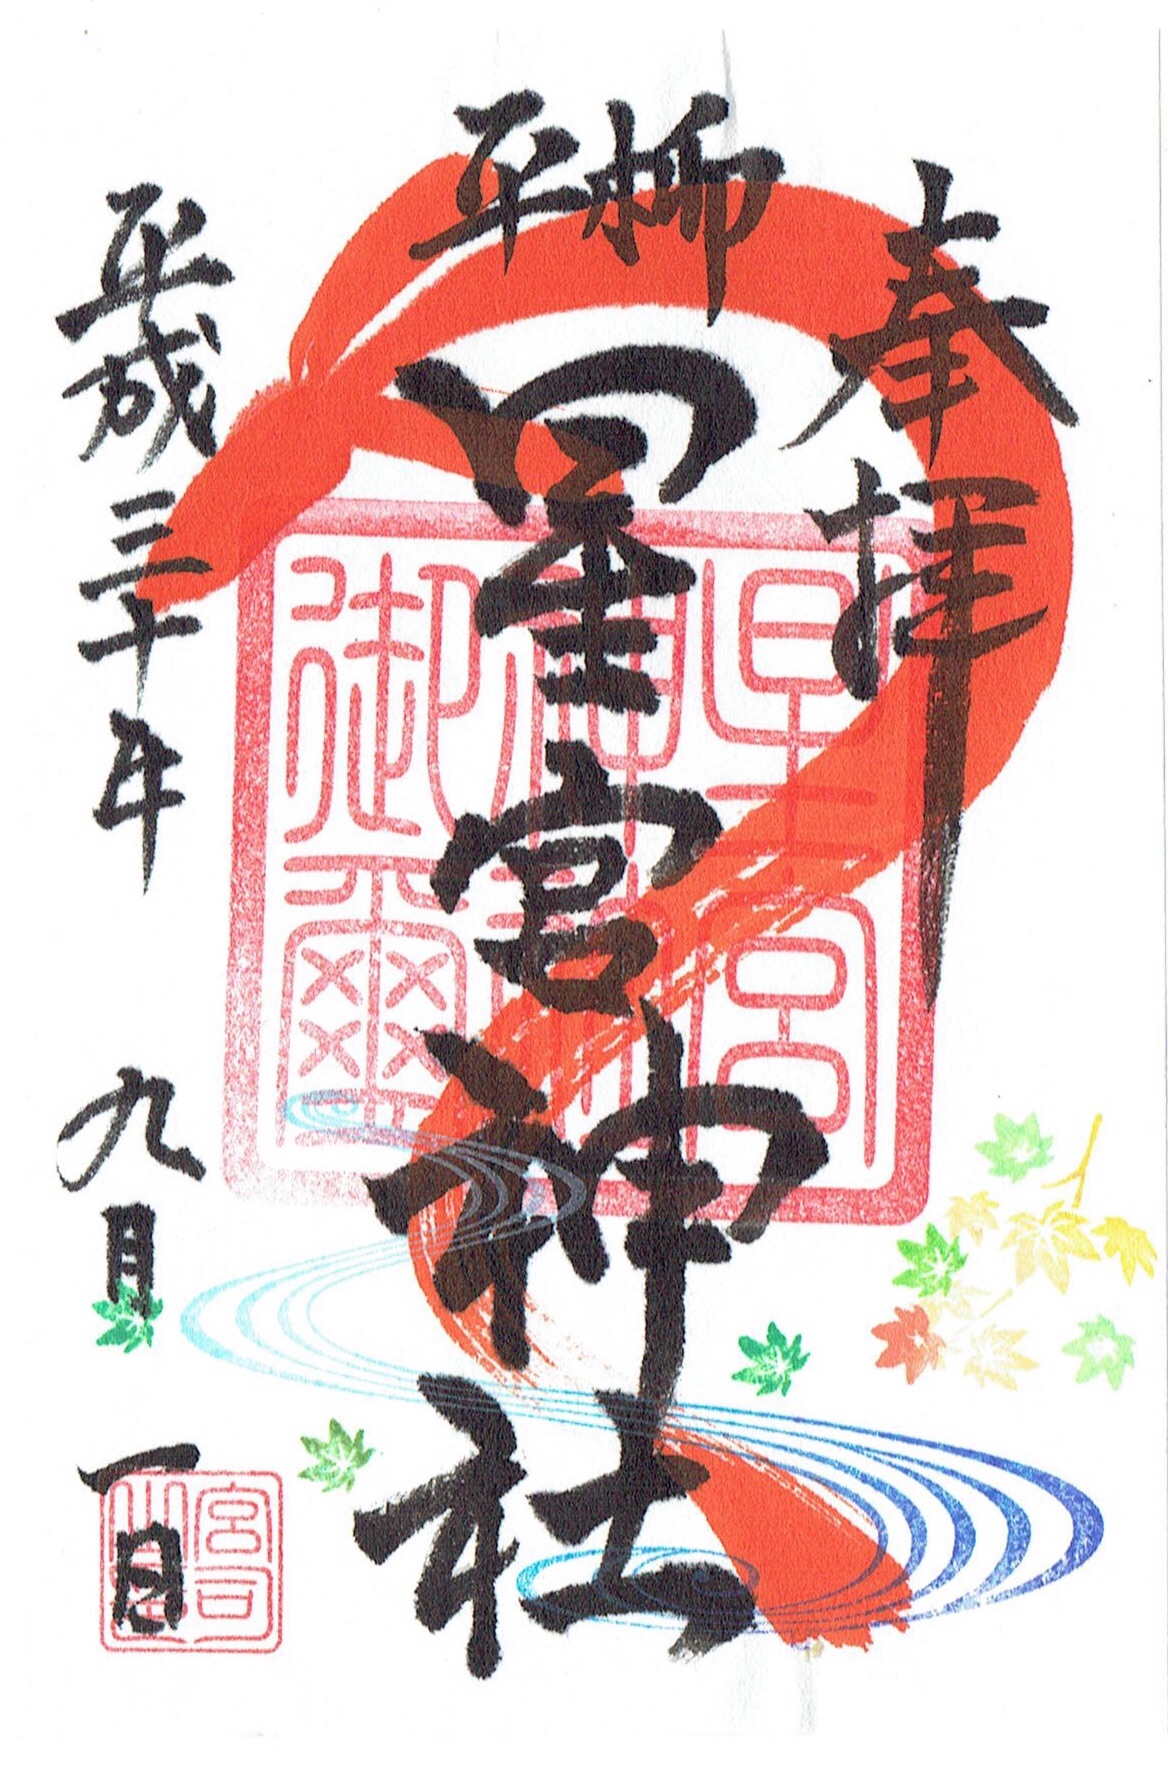 奉拝
平柳
星宮神社
平成三十年 九月 一日
星宮
神社
御璽
宮司
之印